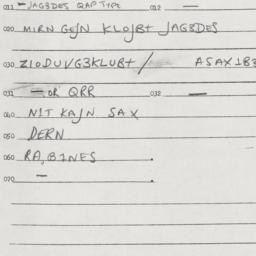 011 — JAGBDES QAP TYPE 012 —
020 MIRN GEJN KLOJBT JAGBDES
030 ZIODUVG3KLUBT / ASAX1B3
031 — OR QRR 032 —
040 NIT KAJN SAX
050 DERN
060 RA, BINES
070 —